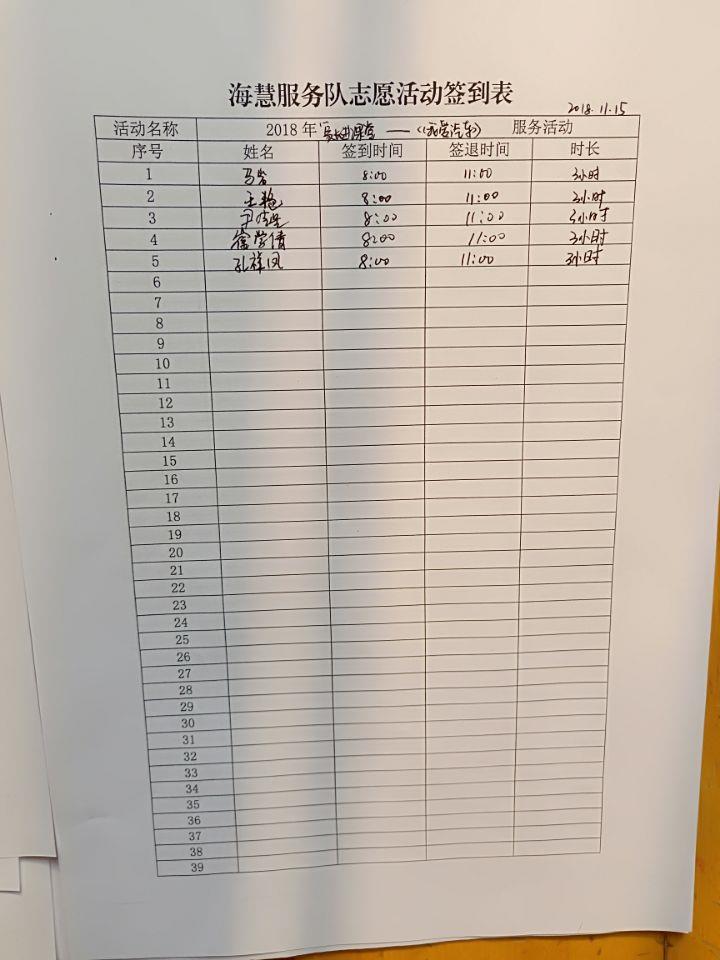 海慧服务队志愿活动签到表
2018.11.15
活动名称 2018年"家长进课堂——《我爱汽车》 服务活动
序号 姓名 签到时间 签退时间 时长
1 马岩 8:00 11:00 3小时
2 王艳 8:00 11:00 3小时
3 8:00 11:00 3小时
4 8:00 11:00 3小时
5 孔祥凤 8:00 11:00 3小时
6
7
8
9
10
11
12
13
14
15
16
17
18
19
20
21
22
23
24
25
26
27
28
29
30
31
32
33
34
35
36
37
38
39